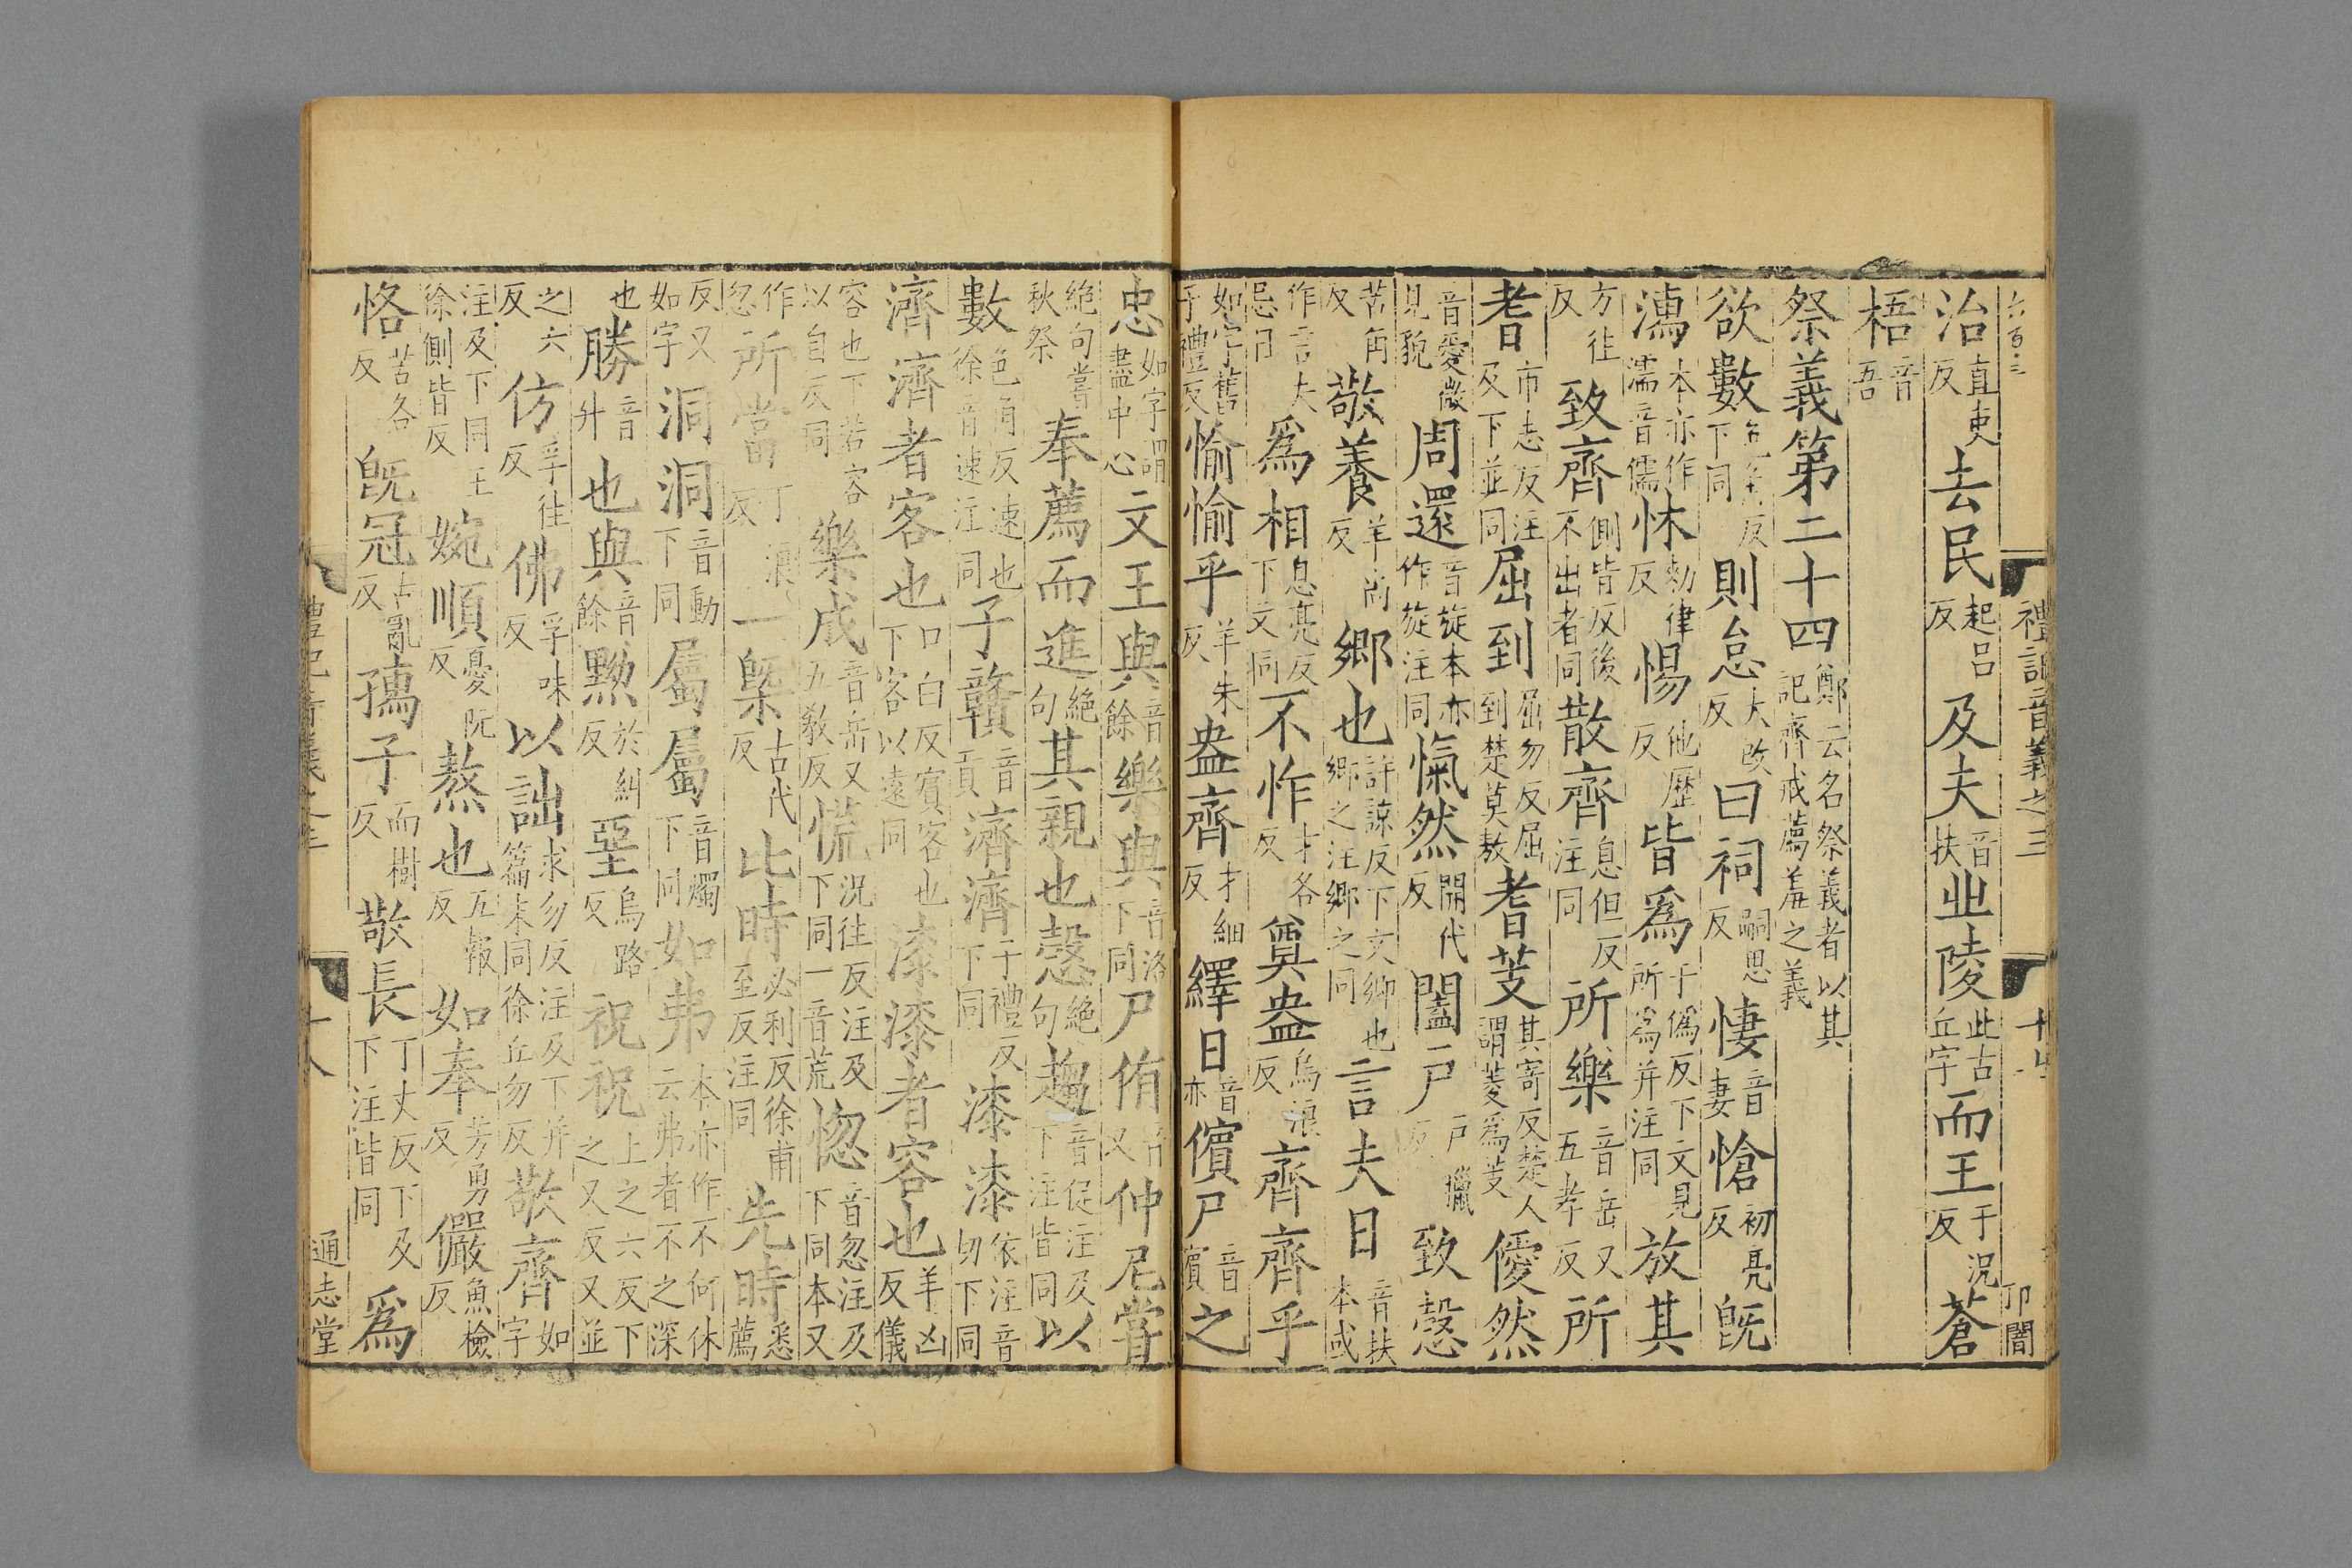 六百三 禮記音義之三 卬闇
治直吏反去民起呂反及夫音扶丠陵此古丘字而王于況反蒼
梧音吾
祭義第二十四鄭云名祭義者以其記齊戒薦羞之義
欲數色角反下同則怠大改反曰祠嗣思反悽音妻愴初亮反旣
濡本亦作濡音儒怵勑律反惕他歷反皆爲于僞反下文見所爲并注同放其
方往反致齊側皆反後不出者同散齊息但反注同所樂音岳又五孝反所
耆市志反注及下並同屈到屈勿反屈到楚莫敖耆芰其寄反楚人謂菱爲芰僾然
音愛微見貌周還音旋本亦作旋注同愾然開代反闔戶戶臘反致愨
苦角反敬養羊尚反鄉也許諒反下文鄉也鄉之注鄉之同言夫日音扶本或
作言夫忌日爲相息亮反下文同不怍才各反奠盎烏浪反齊齊乎
如字舊子禮反愉愉乎羊朱反盎齊才細反繹日音亦儐尸音賓之
忠如字謂盡中心文王與音餘樂與音洛下同尸侑音又仲尼嘗
絶句嘗秋祭奉薦而進絶句其親也愨絶句趨音促注及下注皆同以
數色角反速也徐音速注同子贛音貢濟濟子禮反下同漆漆依注音切下同
濟濟者客也口白反賓客也下客以遠同漆漆者容也羊凶反儀
容也下若容以自反同樂成音岳又五敎反慌況往反注及下同一音荒惚音忽注及下同本又
作忽所當丁浪反一槩古代反比時必利反徐甫至反注同先時悉薦
反又如字洞洞音動下同屬屬音燭下同如弗本亦作不何休云弗者不之深
也勝音升也與音餘黝於糾反堊烏路反祝祝上之六反下之又反又並
之六反仿孚往反佛孚味反以詘求勿反注及下并篇末同徐丘勿反敬齊如字
注及下同王徐側皆反婉順憂阮反熬也五報反如奉芳勇反儼魚檢反
恪苦各反旣冠古亂反孺子而樹反敬長丁丈反下及下注皆同爲
禮記音義之三 十八 通志堂